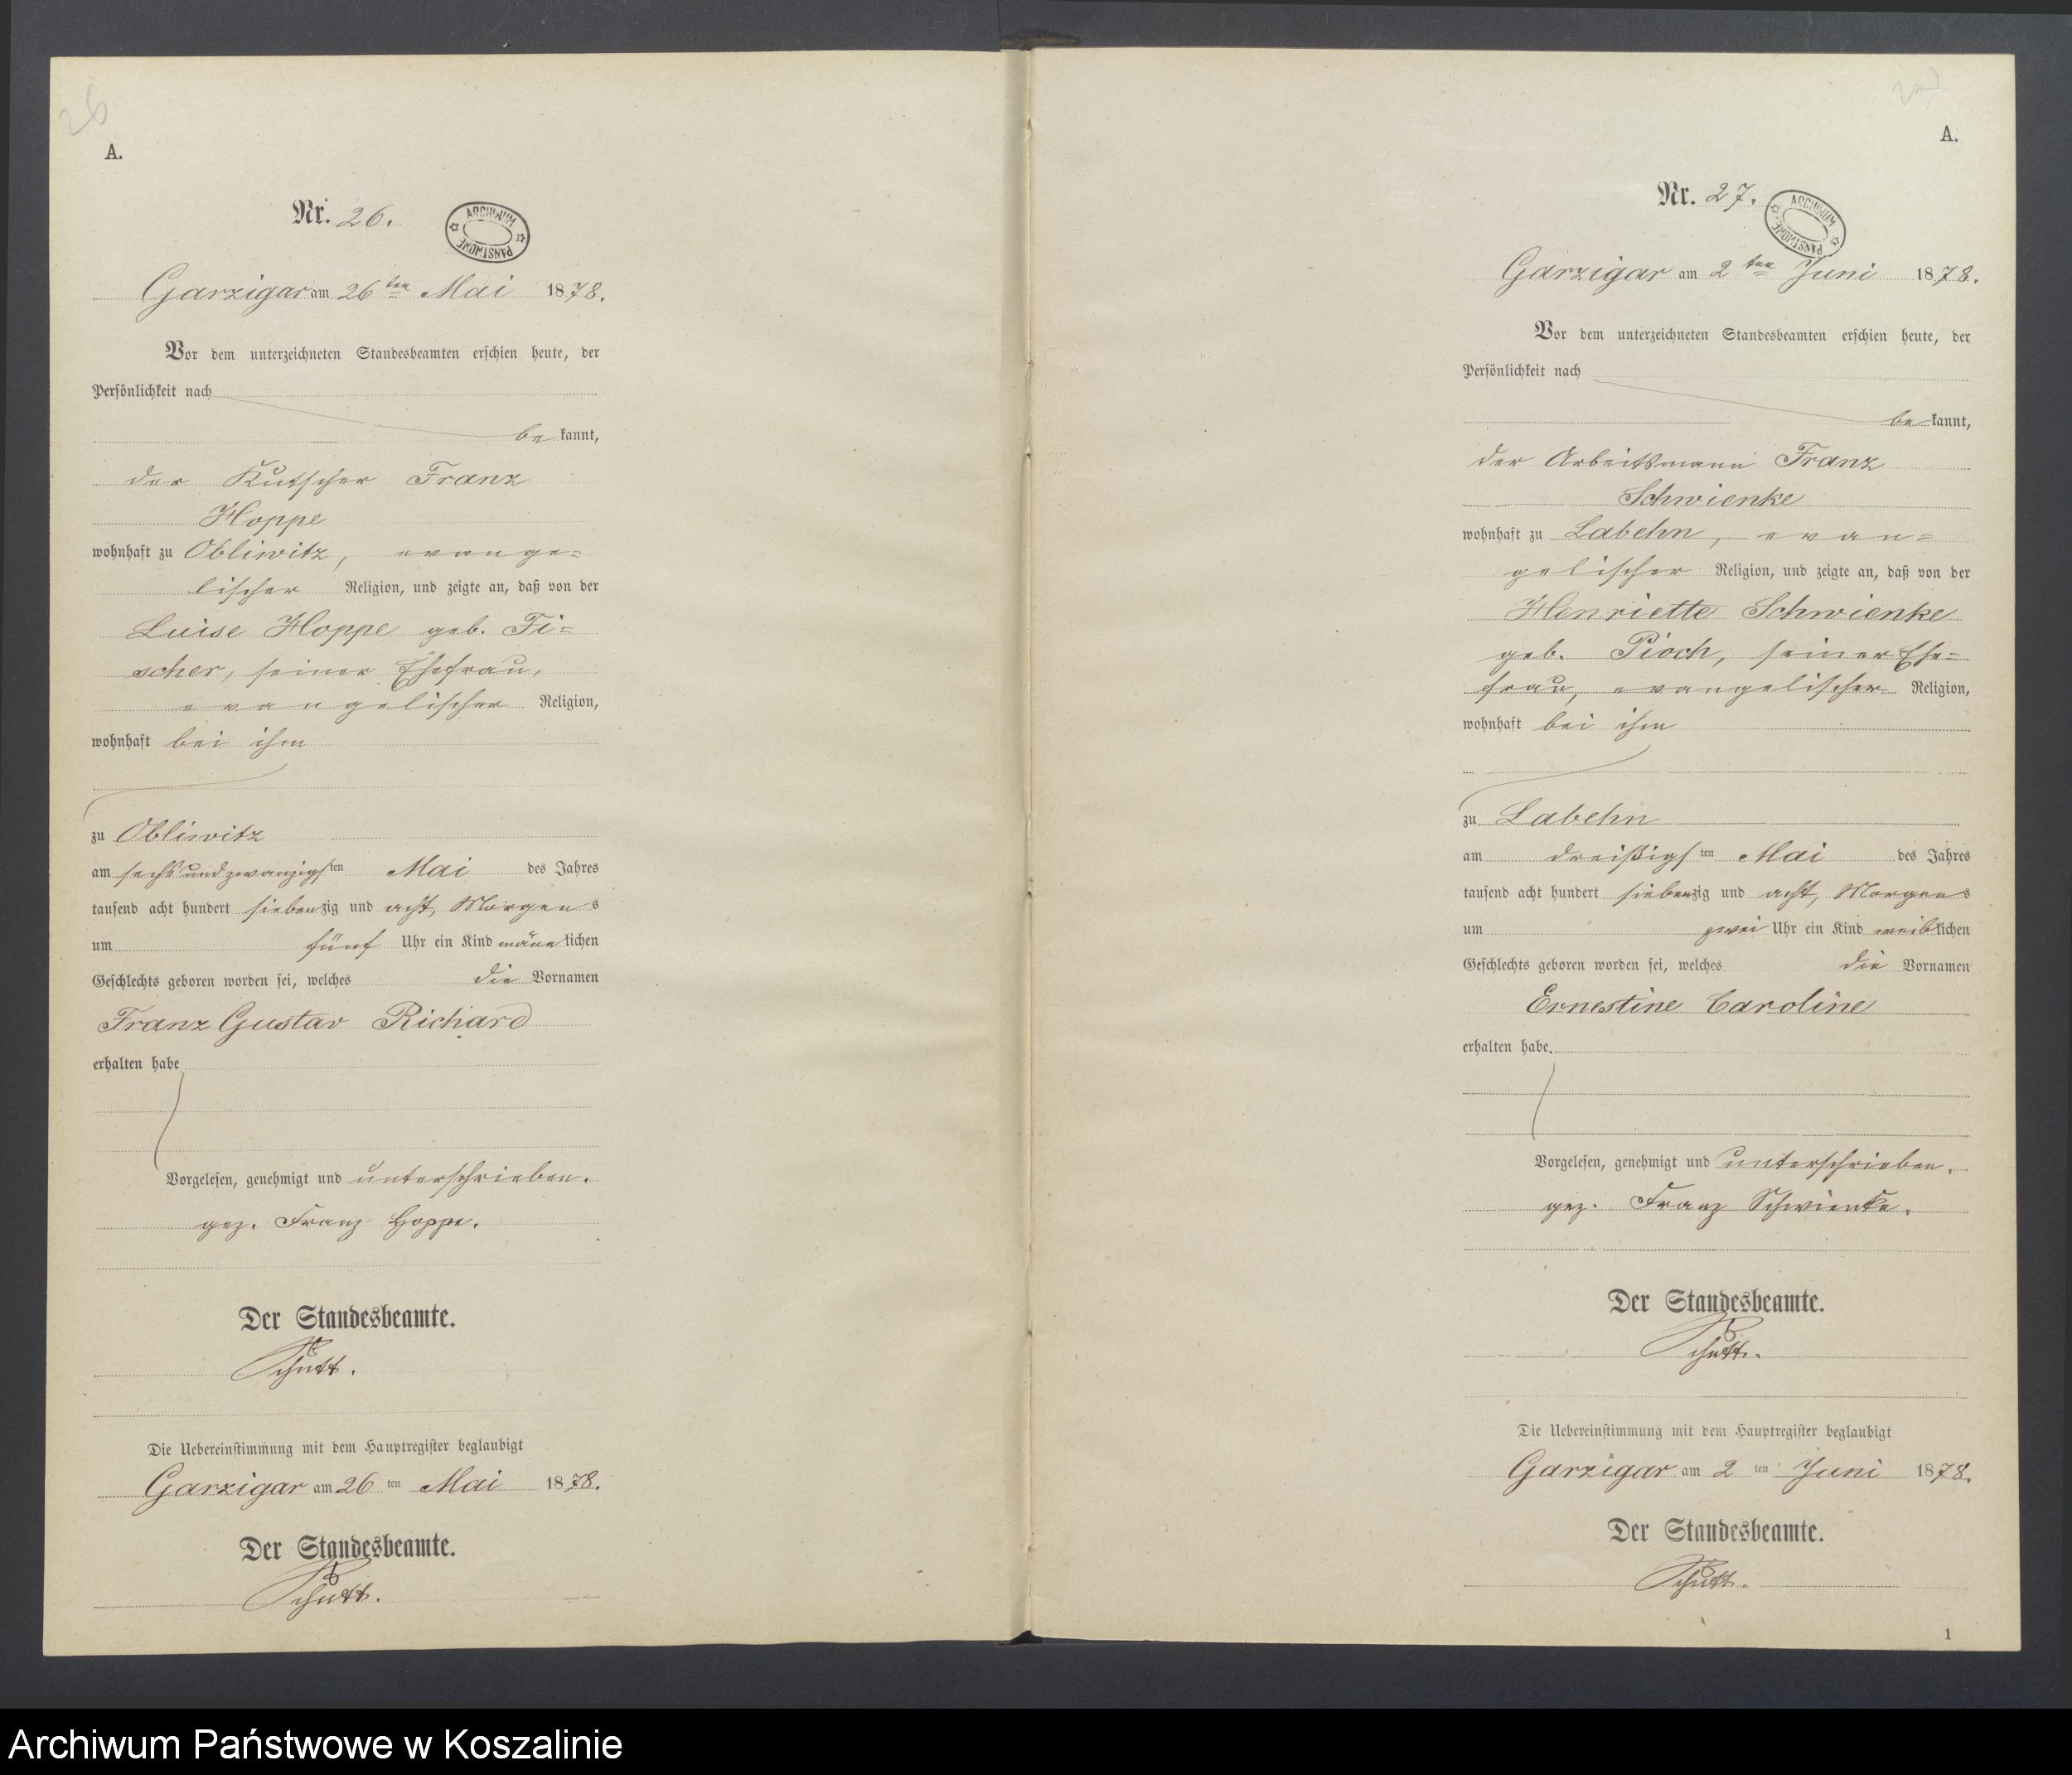 26
A.
Nr. 26.
ARCHIWUM PAŃSTWOWE
Garzigar am 26ten Mai 1878.
Vor dem unterzeichneten Standesbeamten erschien heute, der
Persönlichkeit nach
bekannt,
der Kutscher Franz
Hoppe
wohnhaft zu Obliwitz, evange=
lischer Religion, und zeigte an, daß von der
Luise Hoppe geb. Fi=
scher, seiner Ehefrau,
evangelischer Religion,
wohnhaft bei ihm
zu Obliwitz
am sechsundzwanzigsten Mai des Jahres
tausend acht hundert siebenzig und acht, Morgens
um fünf Uhr ein Kind männlichen
Geschlechts geboren worden sei, welches die Vornamen
Franz Gustav Richard
erhalten habe
Vorgelesen, genehmigt und unterschrieben.
gez. Franz Hoppe.
Der Standesbeamte.
Schütt.
Die Uebereinstimmung mit dem Hauptregister beglaubigt
Garzigar am 26ten Mai 1878.
Der Standesbeamte.
Schütt.
27
A.
Nr. 27.
ARCHIWUM PAŃSTWOWE
Garzigar am 2ten Juni 1878.
Vor dem unterzeichneten Standesbeamten erschien heute, der
Persönlichkeit nach
bekannt,
der Arbeitsmann Franz
Schwienke
wohnhaft zu Labehn, evan=
gelischer Religion, und zeigte an, daß von der
Henriette Schwienke
geb. Pioch, seiner Ehe=
frau, evangelischer Religion,
wohnhaft bei ihm
zu Labehn
am dreißigsten Mai des Jahres
tausend acht hundert siebenzig und acht, Morgens
um zwei Uhr ein Kind weiblichen
Geschlechts geboren worden sei, welches die Vornamen
Ernestine Caroline
erhalten habe.
Vorgelesen, genehmigt und unterschrieben.
gez. Franz Schwienke.
Der Standesbeamte.
Schütt.
Die Uebereinstimmung mit dem Hauptregister beglaubigt
Garzigar am 2ten Juni 1878.
Der Standesbeamte.
Schütt.
1
Archiwum Państwowe w Koszalinie